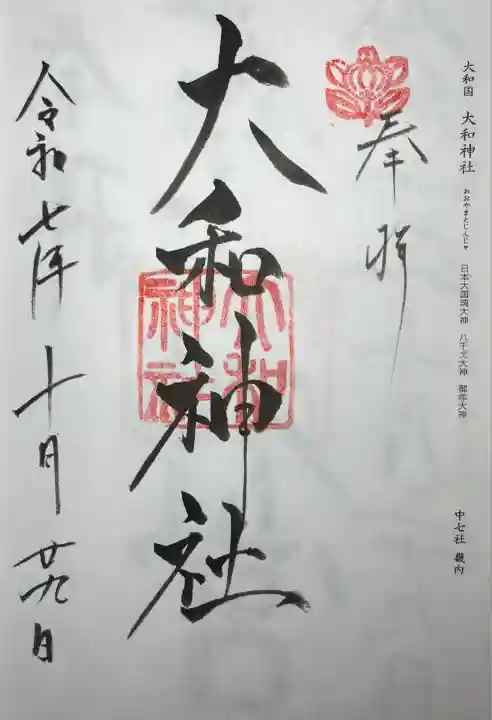 大和国 大和神社 おおやまとじんじゃ 日本大国魂大神 八千戈大神 御年大神 中七社 畿内
奉拝
大和神社
大和神社
令和七年 十月廿九日